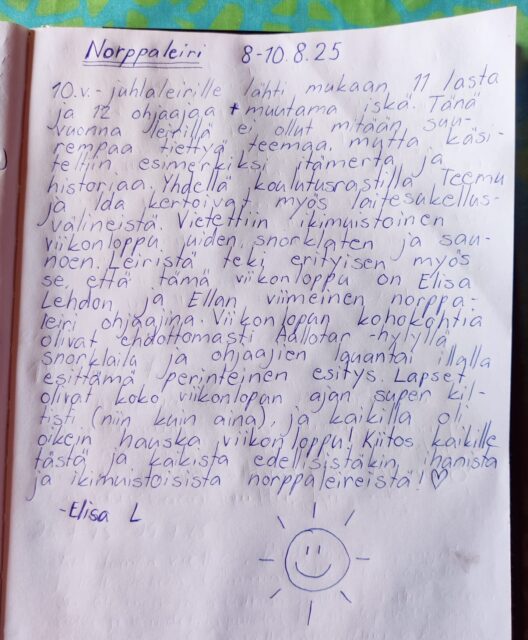 Norppaleiri 8-10.8.25
10.v.- juhlaleirille lähti mukaan 11 lasta
ja 12 ohjaajaa + muutama iskä. Tänä
vuonna leirillä ei ollut mitään suu-
rempaa tiettyä teemaa, mutta käsi-
teltiin esimerkiksi itämerta ja
historiaa. Yhdellä koulutusrastilla Teemu
ja Ida kertoivat myös laitesukellus-
välineistä. Vietettiin ikimuistoinen
viikonloppu uiden, snorklaten ja sau-
noen. Leiristä teki erityisen myös
se, että tämä viikonloppu on Elisa
Lehdon ja Ellan viimeinen norppa-
leiri ohjaajina. Viikonlopun kohokohtia
olivat ehdottomasti Aallotar -hylyllä
snorklailu ja ohjaajien lauantai illalla
esittämä perinteinen esitys. Lapset
olivat koko viikonlopun ajan super kil-
tisti (niin kuin aina), ja kaikilla oli
oikein hauska viikonloppu! Kiitos kaikille
tästä ja kaikista edellisistäkin ihanista
ja ikimuistoisista norppaleireistä! ♡
-Elisa L